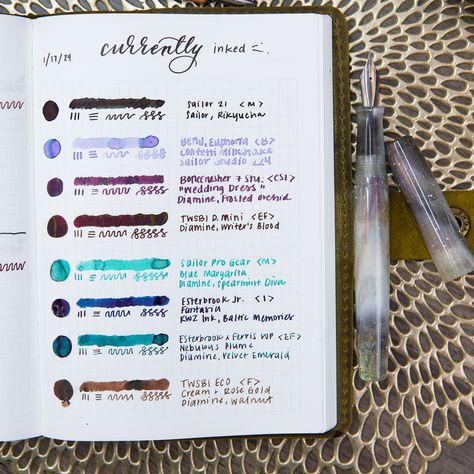 1/17/24
currently inked =.
Sailor 21 <M>
Sailor, Rikyucha
Benu, Euphoria <B>
Confetti Milkshake
Sailor Studio 224
Bonecrusher 7 Stu. <CSI>
"Wedding Dress"
Diamine, Frosted Orchid
TWSBI D. Mini <EF>
Diamine, Writer's Blood
Sailor Pro Gear <M>
Blue Margarita
Diamine, Spearmint Diva
Esterbrook Jr. <J>
Fantasia
KWZ Ink, Baltic Memories
Esterbrook x Ferris WP <EF>
Nebulous Plume
Diamine, Velvet Emerald
TWSBI ECO <F>
Cream + Rose Gold
Diamine, Walnut